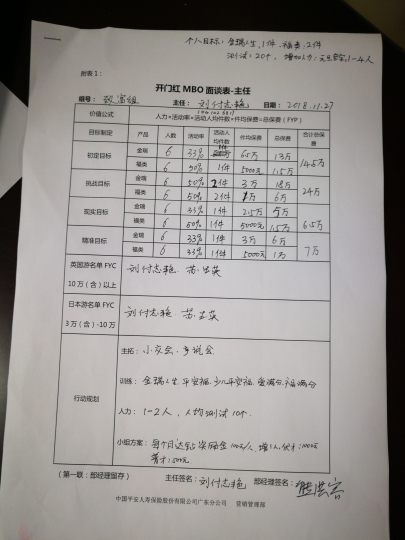 个人目标：金瑞人生1件，福类：2件
附表1：
开门红 MBO 面谈表-主任
组号： 致富组 主任： 刘付志艳 日期： 2018.11.27
价值公式 人力×活动率×活动人均件数×件均保费=总保费（FYP）
目标制定 产品 人数 活动率 活动人均件数 件均保费 总保费 合计总保费
初定目标 金瑞 6 33% 6.5万 13万 14.5万
福类 6 50% 1件 5000元 1.5万
挑战目标 金瑞 6 50% 2件 3万 18万 24万
福类 6 50% 2件 1万 6万
现实目标 金瑞 6 33% 1件 2.5万 5万 6.5万
福类 6 50% 1件 5000元 1.5万
精准目标 金瑞 6 33% 1件 3万 6万 7万
福类 6 33% 1件 5000元 1万
英国游名单 FYC 10万（含）以上 刘付志艳
日本游名单 FYC 3万（含）-10万 刘付志艳
行动规划
主拓：小交会、
训练：金瑞人生、平安福、少儿平安福、
人力：1-2人，人均测试10个.
小组方案：
（第一联：部经理留存） 主任签名：刘付志艳 部经理签名：
中国平安人寿保险股份有限公司广东分公司 营销管理部